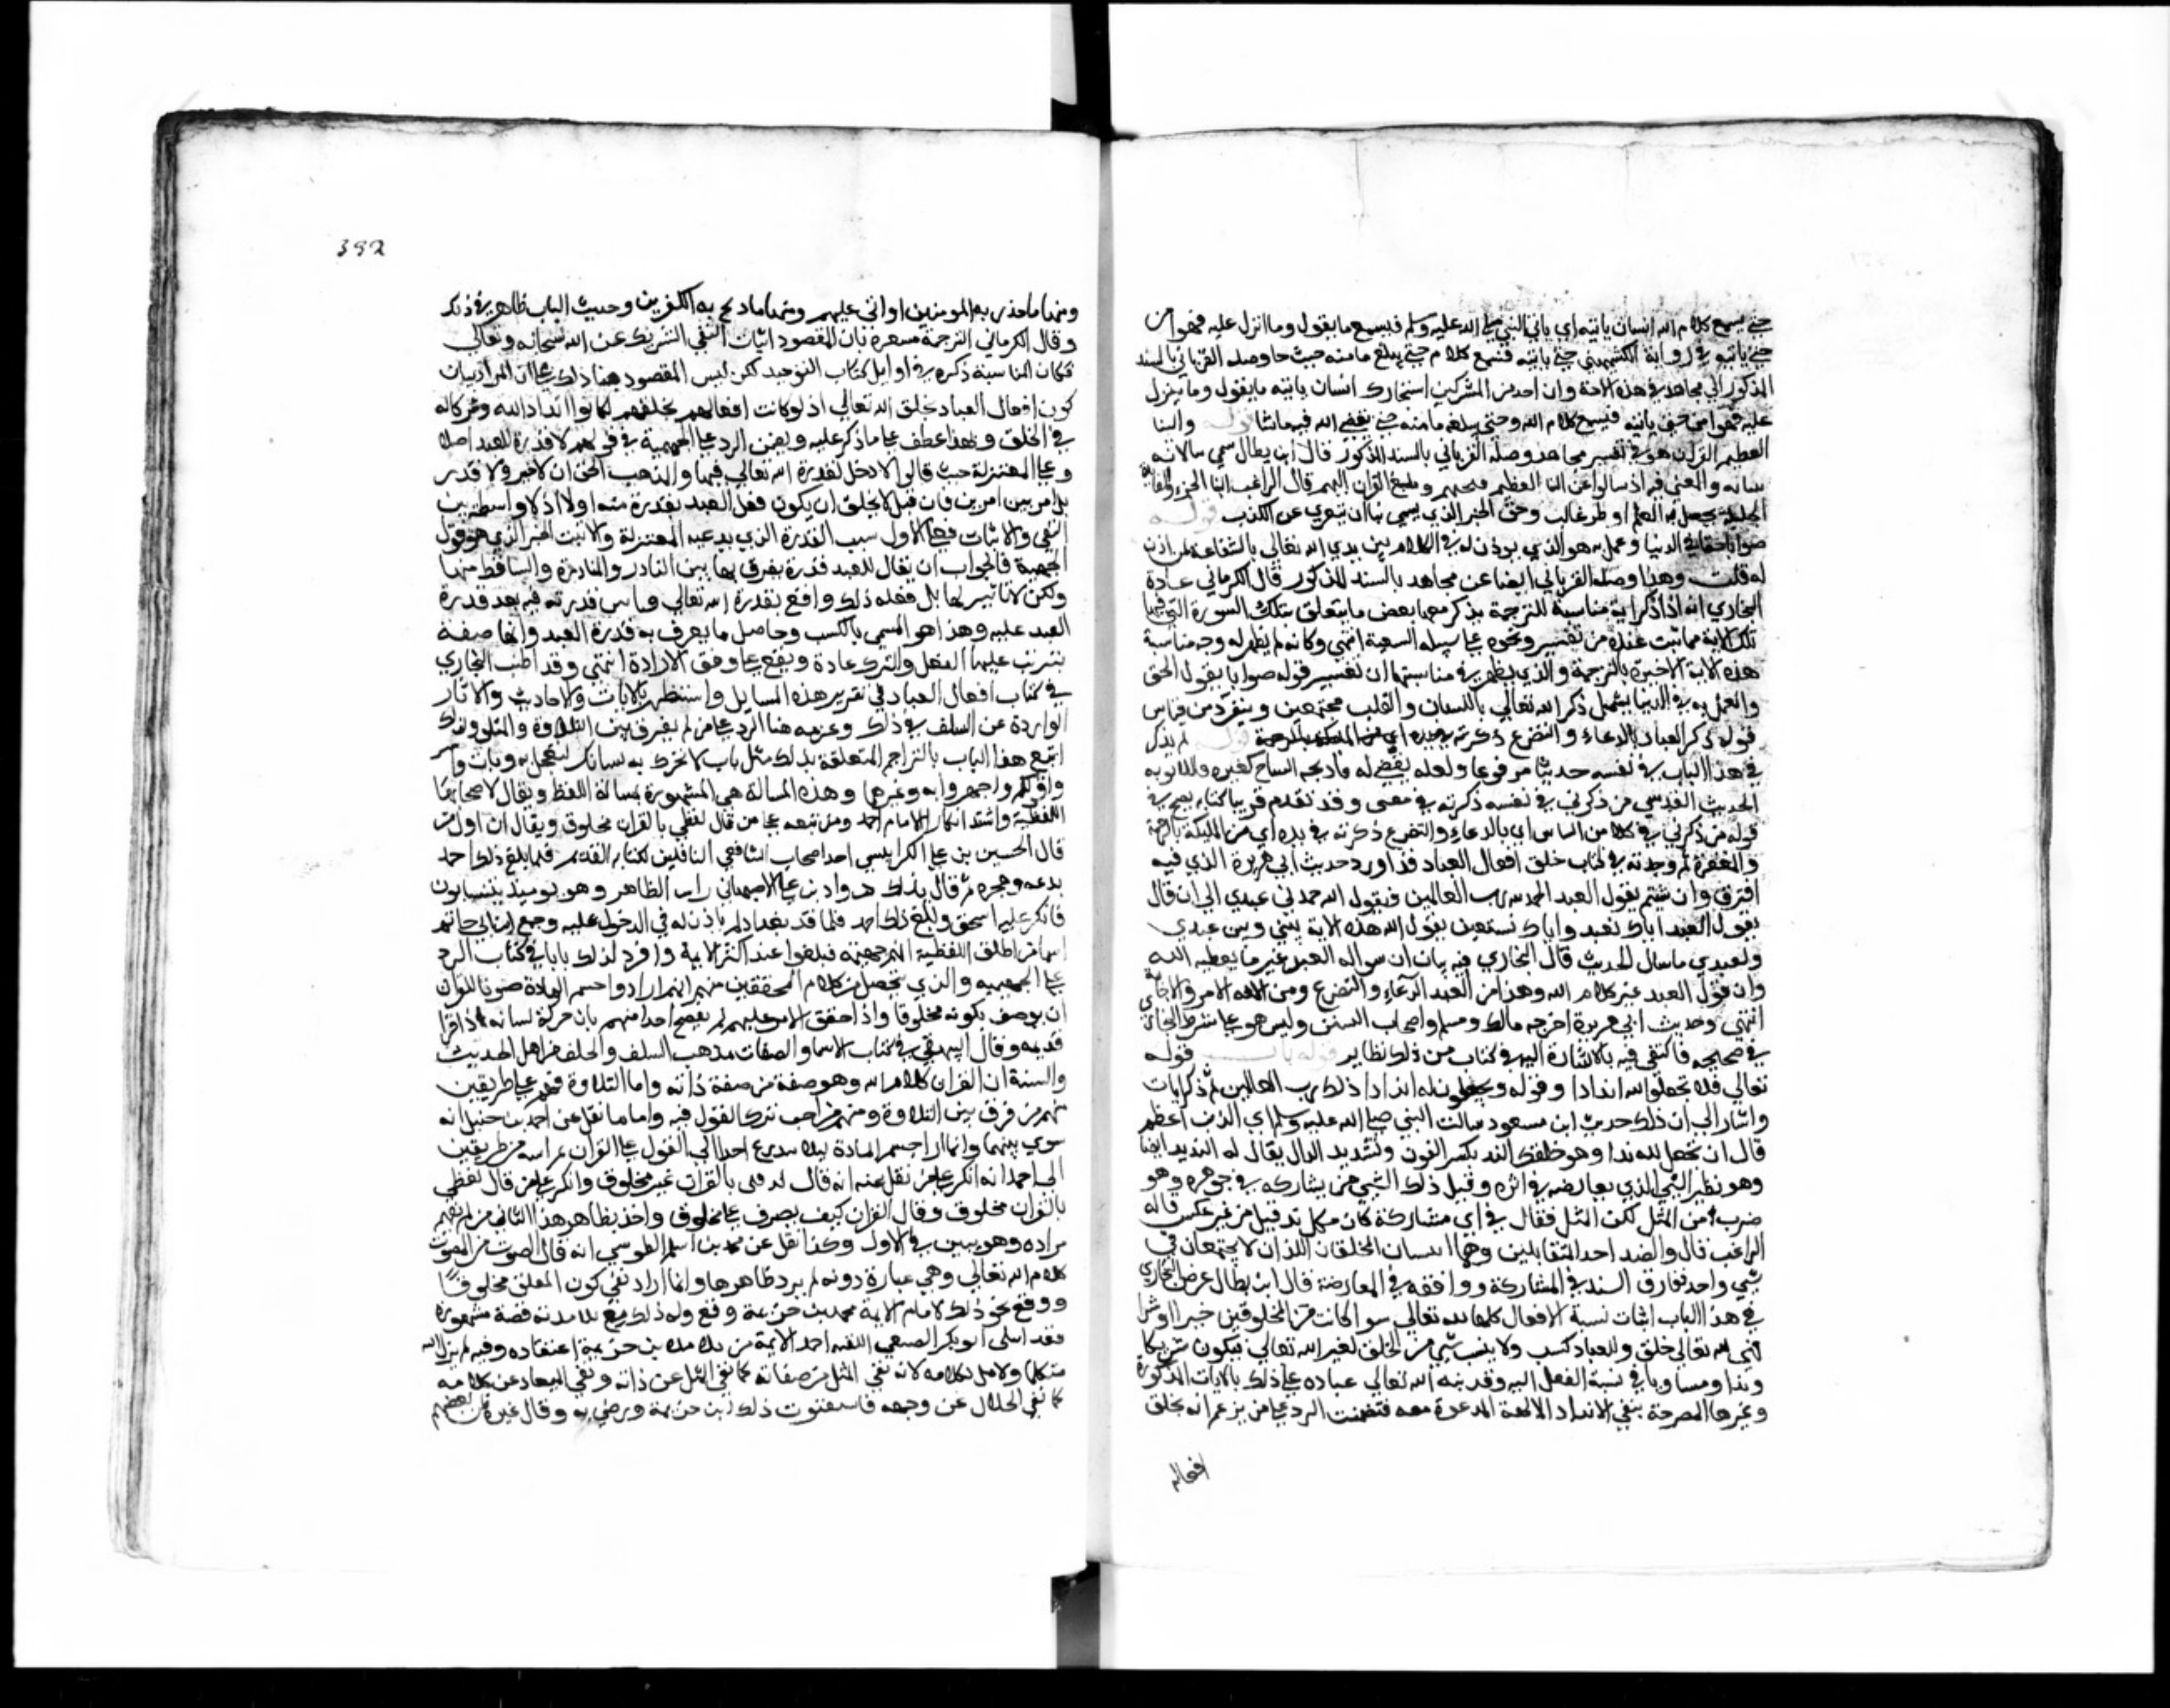 حتى يسمع كلام الله انسان ياتيه اي ياتي النبي صلى الله عليه وسلم فيسمع ما يقول وما انزل عليه فهو امن
حتى ياتيه في رواية الكشميهني حتى ياتيه فيسمع كلام حتى يبلغ مامنه حيث جا وصله الفريابي بالسند
المذكور الي مجاهد في هذه الاية وان احد من المشركين استجارك انسان ياتيه ما يقول وما ينزل
عليه فهو امن حتى ياتيه فيسمع كلام الله وحتى يبلغه مامنه حتى يقضي الله فيه ما شا قوله والنبا
العظيم القران هو في تفسير مجاهد وصله الفريابي بالسند المذكور قال ابن بطال سمي
نبانه والمعني فيه اذ سالوا عن النبا العظيم فتنبهم وبلغ القران اليهم قال الراغب النبا الخبر ذو الفايدة
الجليلة يحصل به العلم او ظن غالب وحق الخبر الذي يسمي نبا ان يتعري عن الكذب قوله
صوابا حقا في الدنيا وعمل به هو الذي يوذن له في الكلام بين يدي الله تعالي بالشفاعة لمن اذن
له قلت وهذا وصله الفريابي ايضا عن مجاهد بالسند المذكور قال الكرماني عادة
البخاري انه اذا ذكر اية مناسبة للترجمة يذكر معها بعض ما يتعلق بتلك السورة التي فيها
تلك الاية مما ثبت عنده من تفسير ونحوه علي سبيل التبعية انتهي وكانه لم يظهر له وجه مناسبة
هذه الاية الاخيرة بالترجمة والذي يظهر في مناسبتها ان تفسير قوله صوابا يقول الحق
والعمل به في الدنيا يشمل ذكر الله تعالي باللسان والقلب مجتمعين ومنفردين فناسب
قوله ذكر العباد بالدعاء والتضرع قوله لم يذكر
في هذا الباب في نفسه حديثا مرفوعا ولعله بيض له فادمجه النساخ كغيره واللايق به
الحديث القدسي من ذكرني في نفسه ذكرته في نفسي وقد تقدم قريبا
قوله من ذكرني في ملا من الناس اي بالدعاء والتضرع ذكرته في ملا اي من الملايكة بالرحمة
والمغفرة ثم وجدته في كتاب خلق افعال العباد قد اورد حديث ابي هريرة الذي فيه
اقرؤا ان شئتم يقول العبد الحمد لله رب العالمين فيقول الله حمدني عبدي الي ان قال
يقول العبد اياك نعبد واياك نستعين يقول الله هذه الاية بيني وبين عبدي
ولعبدي ما سال الحديث قال البخاري فيه بيان ان سوال العبد غير ما يعطيه الله
وان قول العبد غير كلام الله وهذا من العبد الدعاء والتضرع ومن الله الامر والاجابة
انتهي وحديث ابي هريرة اخرجه مالك ومسلم واصحاب السنن وليس هو علي شرط البخاري
في صحيحه فاكتفي فيه بالاشارة اليه وفي كتابه من ذلك نظاير قوله باب قوله
تعالي فلا تجعلوا لله اندادا وقوله وتجعلون له اندادا ذلك رب العالمين ثم ذكر ايات
واشار الي ان ذلك حديث ابن مسعود سالت النبي صلى الله عليه وسلم اي الذنب اعظم
قال ان تجعل لله ندا وهو خلقك الند بكسر النون وتشديد الدال يقال له النديد ايضا
وهو نظير الشي الذي يعارضه في اموره وقيل ند الشي من يشاركه في جوهره وهو
ضرب من المثل لكن المثل يقال في اي مشاركة كان فكل ند مثل من غير عكس قاله
الراغب قال والضد احد المتقابلين وهما الشيان المختلفان اللذان لا يجتمعان في
شي واحد ففارق الند في المشاركة ووافقه في المعارضة قال ابن بطال غرض البخاري
في هذا الباب اثبات نسبة الافعال كلها لله تعالي سوا كانت من المخلوقين خيرا او شرا
فهي لله تعالي خلق وللعباد كسب ولا ينسب شي من الخلق لغير الله تعالي فيكون شريكا
وندا ومساويا في نسبة الفعل اليه وقد نبه الله تعالي عباده علي ذلك بالايات المذكورة
وغيرها المصرحة بنفي الانداد والالهة المدعوة معه فتضمنت الرد علي من يزعم انه يخلق
افعاله
392
ومنها ما حذر به المومنين او اثني عليهم ومنها ما وبخ به الكافرين وحديث الباب ظاهر في ذلك
وقال الكرماني الترجمة مشعرة بان المقصود اثبات نفي الشريك عن الله سبحانه وتعالي
فكان المناسبة ذكره في اوايل كتاب التوحيد لكن ليس المقصود هنا ذلك بل المراد بيان
كون افعال العباد بخلق الله تعالي اذ لو كانت افعالهم بخلقهم لكانوا اندادا لله وشركا له
في الخلق ولهذا عطف ما ذكر عليه وتضمن الرد علي الجهمية في قولهم لا قدرة للعبد اصلا
وعلي المعتزلة حيث قالوا لا دخل لقدرة الله تعالي فيها والمذهب الحق ان لا جبر ولا قدر
بل امر بين امرين فان قيل لا يخلو ان يكون فعل العبد بقدرة منه او لا اذ لا واسطة بين
النفي والاثبات فعلي الاول يثبت القدر الذي يدعيه المعتزلة والا ثبت الجبر الذي هو قول
الجهمية فالجواب ان يقال للعبد قدرة يفرق بها بين النازل من المنارة والساقط منها
ولكن لا تاثير لها بل فعله ذلك واقع بقدرة الله تعالي فتاثير قدرته فيه بعد قدرة
العبد عليه وهذا هو المسمي بالكسب وحاصل ما يعرف به قدرة العبد وانها صفة
يترتب عليها الفعل والترك عادة ويقع علي وفق الارادة انتهي وقد اطنب البخاري
في كتاب افعال العباد في تقرير هذه المسايل واستظهر بالايات والاحاديث والاثار
الواردة عن السلف في ذلك وغرضه هنا الرد علي من لم يفرق بين التلاوة والمتلو ولذلك
اتبع هذا الباب بالتراجم المتعلقة بذلك مثل باب لا تحرك به لسانك لتعجل به وباب واسروا
قولكم واجهروا به وغيرها وهذه المسالة هي المشهورة بمسالة اللفظ ويقال لاصحابها
اللفظية واشتد انكار الامام احمد ومن تبعه علي من قال لفظي بالقران مخلوق ويقال ان اول من
قاله الحسين بن علي الكرابيسي احد اصحاب الشافعي الناقلين لكتابه القديم فلما بلغ ذلك احمد
بدعه وهجره ثم قال بذلك داود بن علي الاصبهاني راس الظاهر وهو يوميذ بنيسابور
فانكر عليه اسحق وبلغ ذلك احمد فلما قدم بغداد لم ياذن له في الدخول عليه وجمع ابن ابي حاتم
اسما من اطلق اللفظية انهم جهمية فبلغوا عددا كثيرا من الايمة وافرد لذلك بابا في كتاب الرد
علي الجهمية والذي يتحصل من كلام المحققين منهم انهم ارادوا حسم المادة صونا للقران
ان يوصف بكونه مخلوقا واذا حقق الامر عليهم لم يفصح احد منهم بان حركة لسانه اذا قرا
قديمة وقال البيهقي في كتاب الاسما والصفات مذهب السلف والخلف من اهل الحديث
والسنة ان القران كلام الله وهو صفة من صفة ذاته واما التلاوة فهم علي طريقين
منهم من فرق بين التلاوة ومنهم من احب ترك القول فيه واما ما نقل عن احمد بن حنبل انه
سوي بينهما وانما اراد حسم المادة ليلا يتدرع احد الي القول بخلق القران ثم اسند من طريقين
الي احمد انه انكر علي من نقل عنه انه قال لفظي بالقران غير مخلوق وانكر علي من قال لفظي
بالقران مخلوق وقال القران كيف يصرف غير مخلوق واخذ بظاهر هذا الثاني من لم يفهم
مراده وهو مبين في الاول وكذا نقل عن محمد بن اسلم الطوسي انه قال الصوت من المصوت
كلام الله تعالي وهي عبارة ردية لم يرد ظاهرها وانما اراد نفي كون المتلو مخلوقا
ووقع نحو ذلك لامام الايمة محمد بن خزيمة ثم رجع وله في ذلك مع تلامذته قصة مشهورة
فقد املي ابو بكر الصبغي الفقيه احد الايمة من تلامذة بن خزيمة اعتقاده وفيه لم يزل الله
متكلما ولا مثل لكلامه لانه نفي المثل عن صفاته كما نفي المثل عن ذاته ونفي النفاد عن كلامه
كما نفي الهلاك عن وجهه فاستصوب ذلك ابن خزيمة ورضي به وقال غيره ظن بعضهم